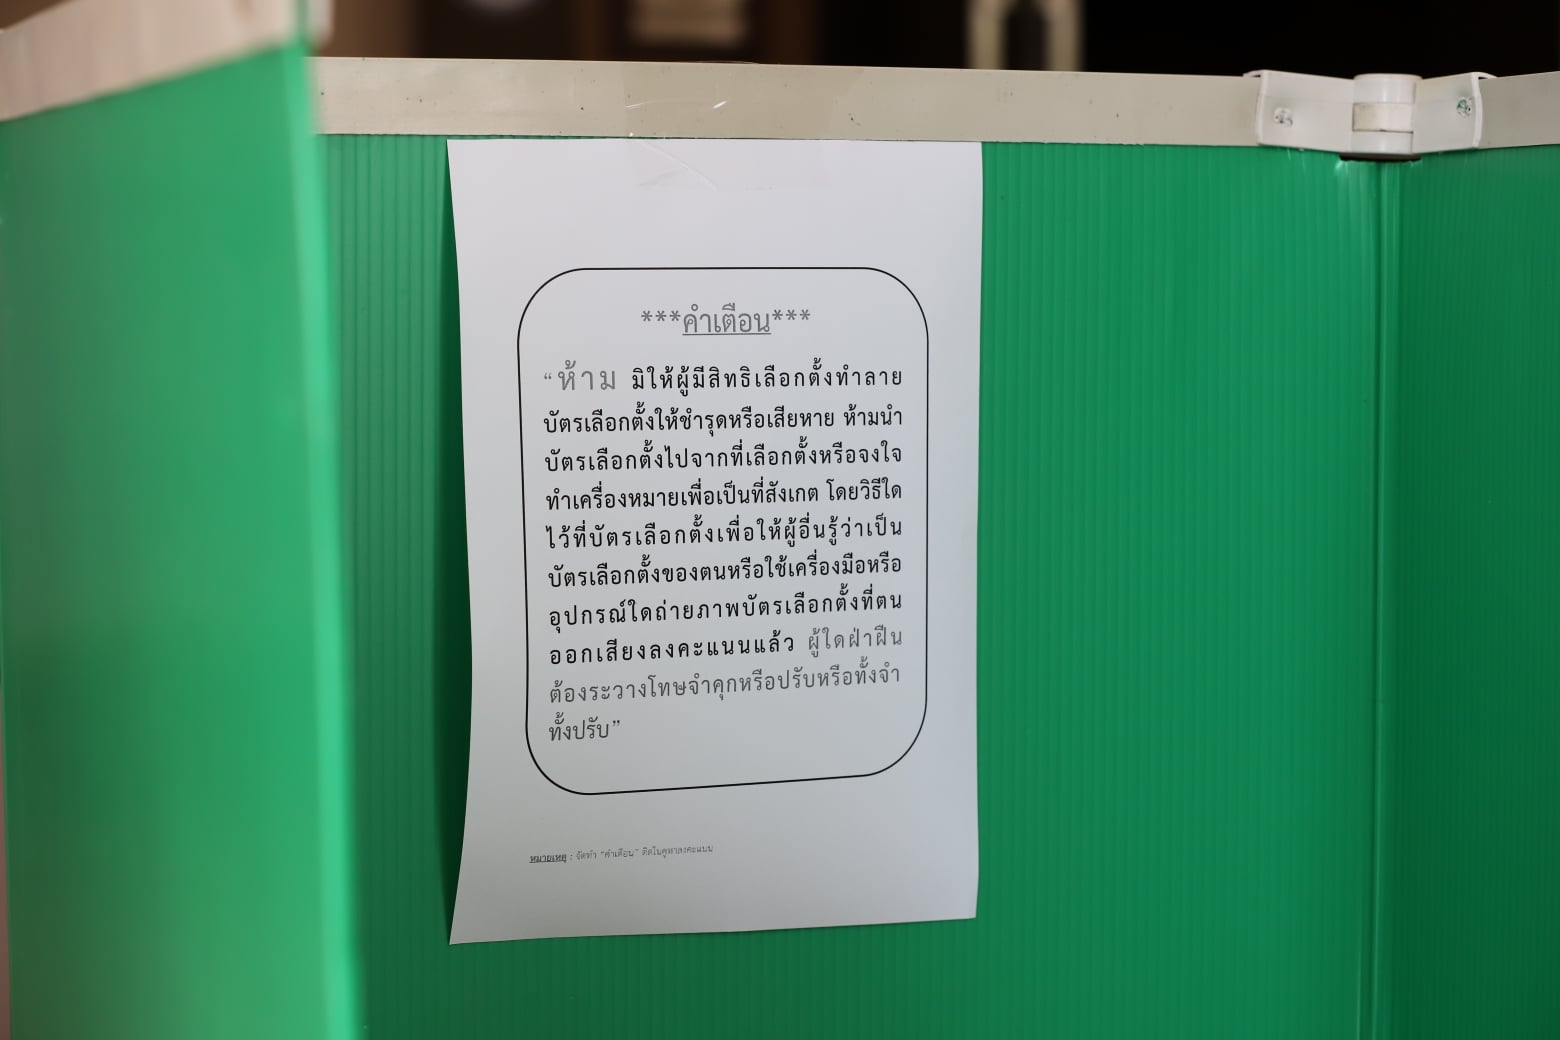 ***คำเตือน***
“ห้าม มิให้ผู้มีสิทธิเลือกตั้งทำลาย
บัตรเลือกตั้งให้ชำรุดหรือเสียหาย ห้ามนำ
บัตรเลือกตั้งไปจากที่เลือกตั้งหรือจงใจ
ทำเครื่องหมายเพื่อเป็นที่สังเกต โดยวิธีใด
ไว้ที่บัตรเลือกตั้งเพื่อให้ผู้อื่นรู้ว่าเป็น
บัตรเลือกตั้งของตนหรือใช้เครื่องมือหรือ
อุปกรณ์ใดถ่ายภาพบัตรเลือกตั้งที่ตน
ออกเสียงลงคะแนนแล้ว ผู้ใดฝ่าฝืน
ต้องระวางโทษจำคุกหรือปรับหรือทั้งจำ
ทั้งปรับ”
หมายเหตุ : จัดทำ “คำเตือน” ติดในคูหาลงคะแนน